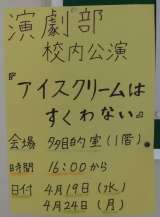 演劇部
校内公演
『アイスクリームは
すくわない』
会場 多目的室(1階)
時間 16:00から
日付 4月19日(水)
4月24日(月)